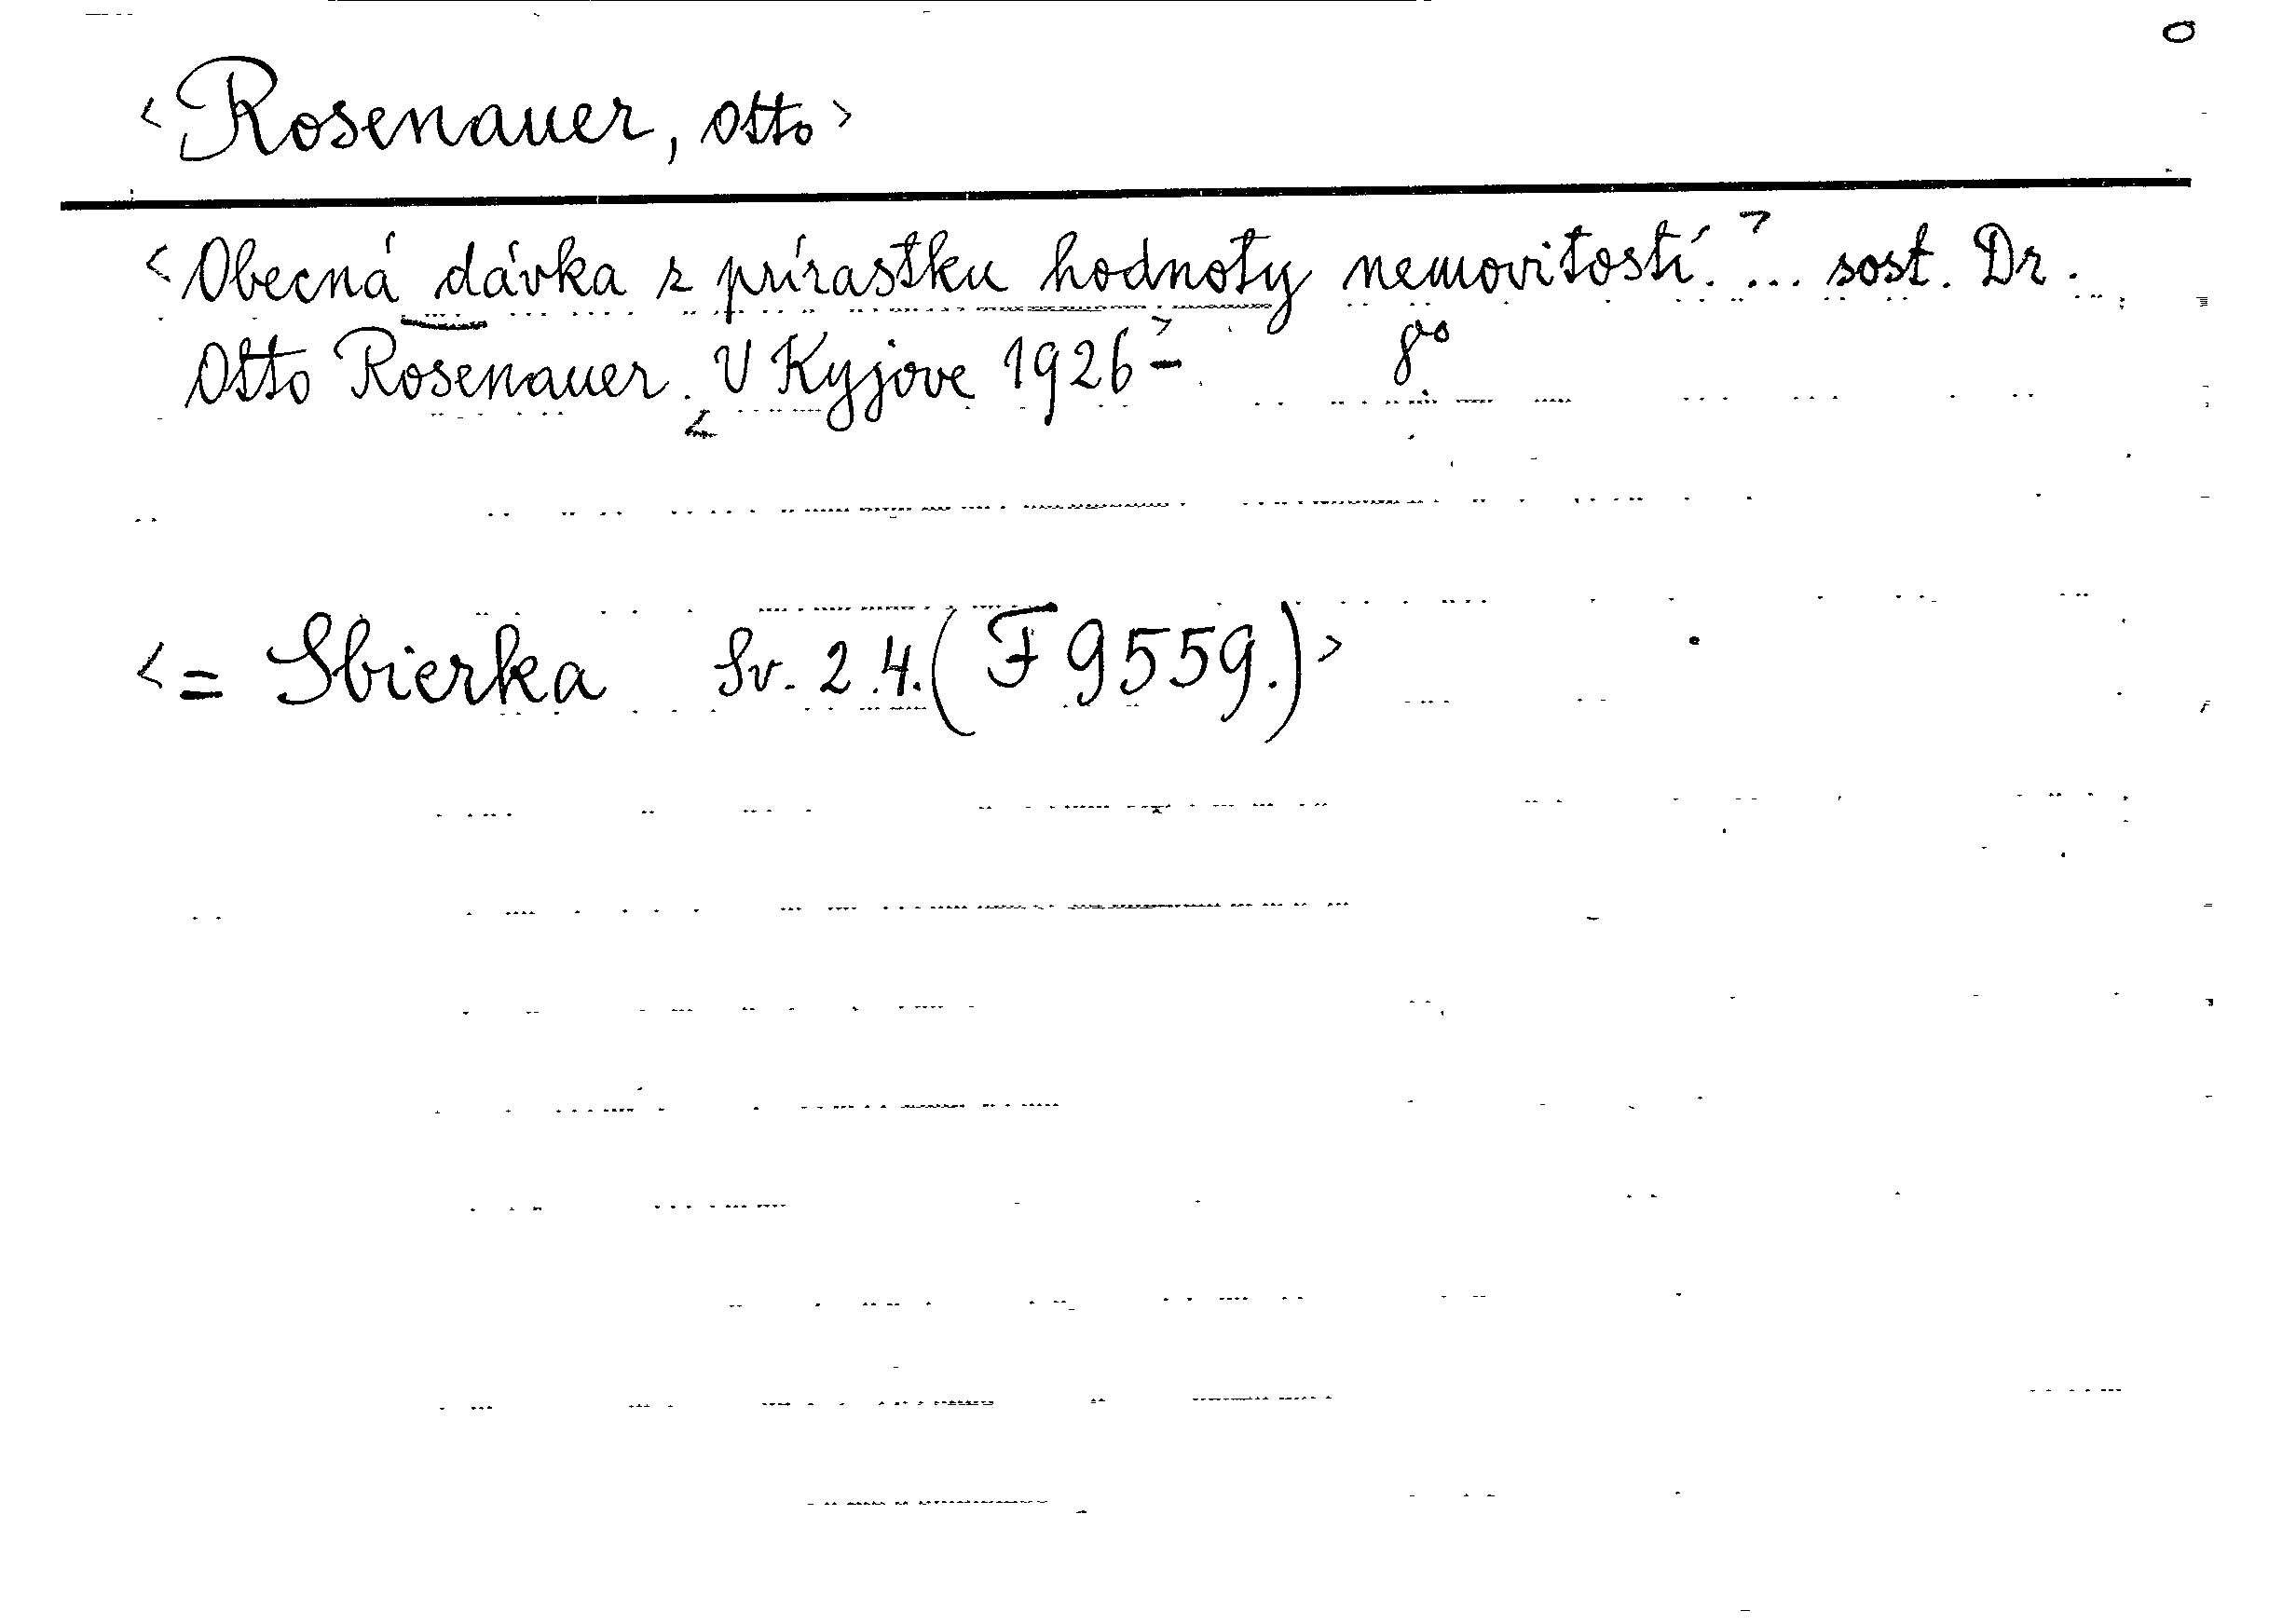 0
<Rosenauer, Otto>
<Obecná dávka z prírastku hodnoty nemovitostí.> ... sost. Dr.
Otto Rosenauer. <V Kyjove 1926-> 8°
<= Sbierka Sv. 2.4. (F 9559.)>